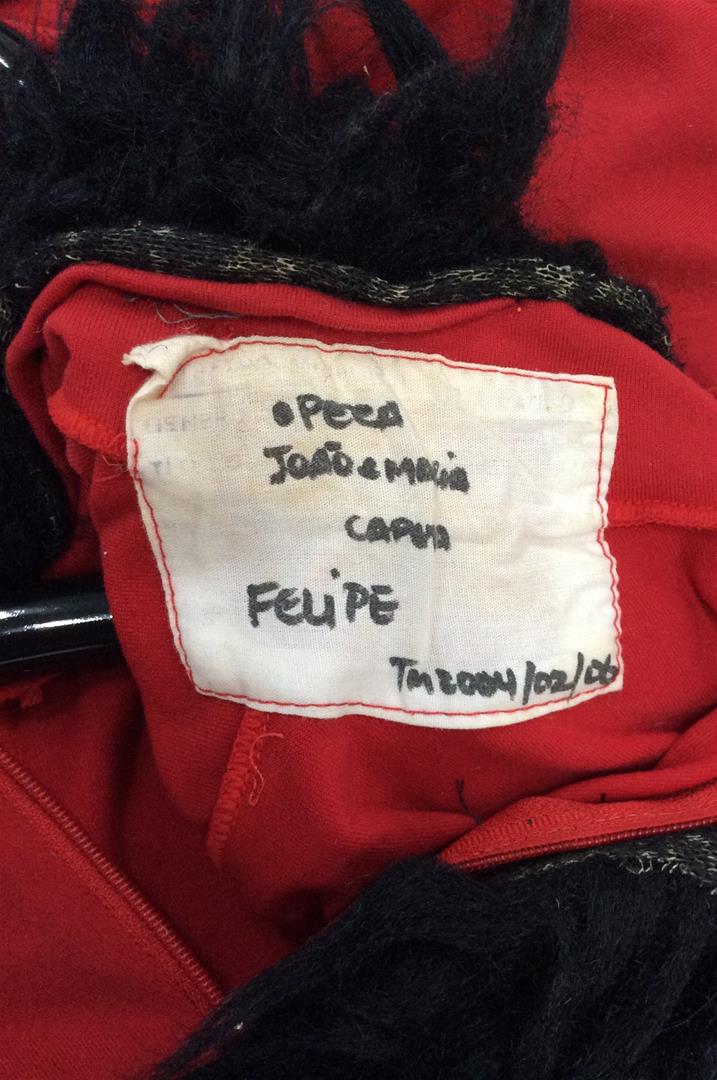 OPERA
JOÃO e MARIA
CAPUA
FELIPE
TM2004/02/06